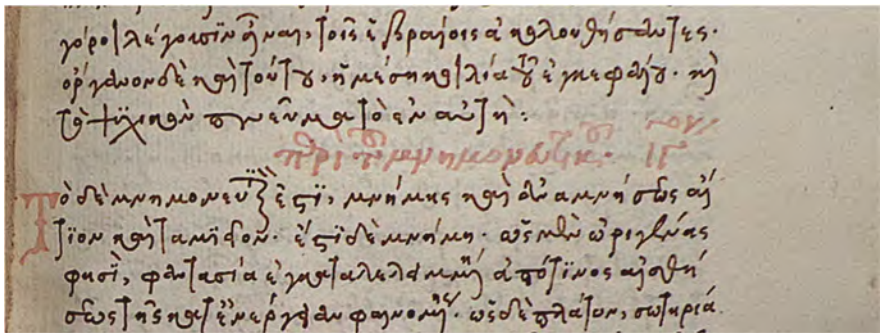 γόροι λέγουσιν εἶναι, τοῖς ἑβραίοις ἀκολουθήσαντες.
ὄργανον δὲ καὶ τούτου, ἡ μέση κοιλία τοῦ ἐγκεφάλου. καὶ
τὸ ψυχικὸν πνεῦμα τὸ ἐν αὐτῆ:
περὶ τοῦ μνημονευτικοῦ. ιγ
Τὸ δὲ μνημονευτικόν ἐστϊ, μνήμης καὶ ἀναμνήσεως αἴ
τϊον καὶ ταμῖον. ἔστϊ δὲ μνήμη. ὡς μὲν ὠριγένης
φησὶ, φαντασία ἐγκαταλελειμμένη ἀπό τϊνος αἰσθή
σεως τῆς κατ᾽ ἐνέργειαν φαινομένης. ὡς δὲ πλάτων, σωτηρία